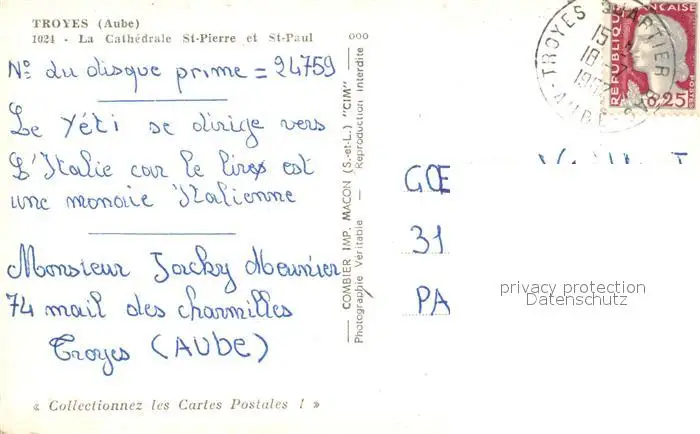 TROYES (Aube)
1024 - La Cathédrale St-Pierre et St-Paul
N° du disque prime = 24759
Le Yéti se dirige vers
L'Italie car le lires est
une monaie Italienne
Monsieur Jacky Meunier
74 mail des charmilles
Troyes (AUBE)
« Collectionnez les Cartes Postales ! »
COMBIER IMP. MACON (S.-et-L.) "CIM"
Photographie Véritable - Reproduction Interdite
TROYES QUARTIER BAS
AUBE
REPUBLIQUE FRANÇAISE
0,25
GŒ
31
PA
privacy protection
Datenschutz